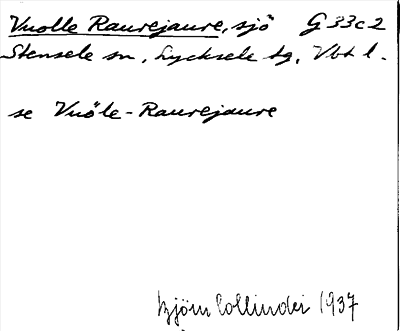 Vuolle Raurejaure, sjö G 33c2
Stensele sn, Lycksele tg, Vbt l.
se Vuöle-Raurejaure
Björn Collinder 1937